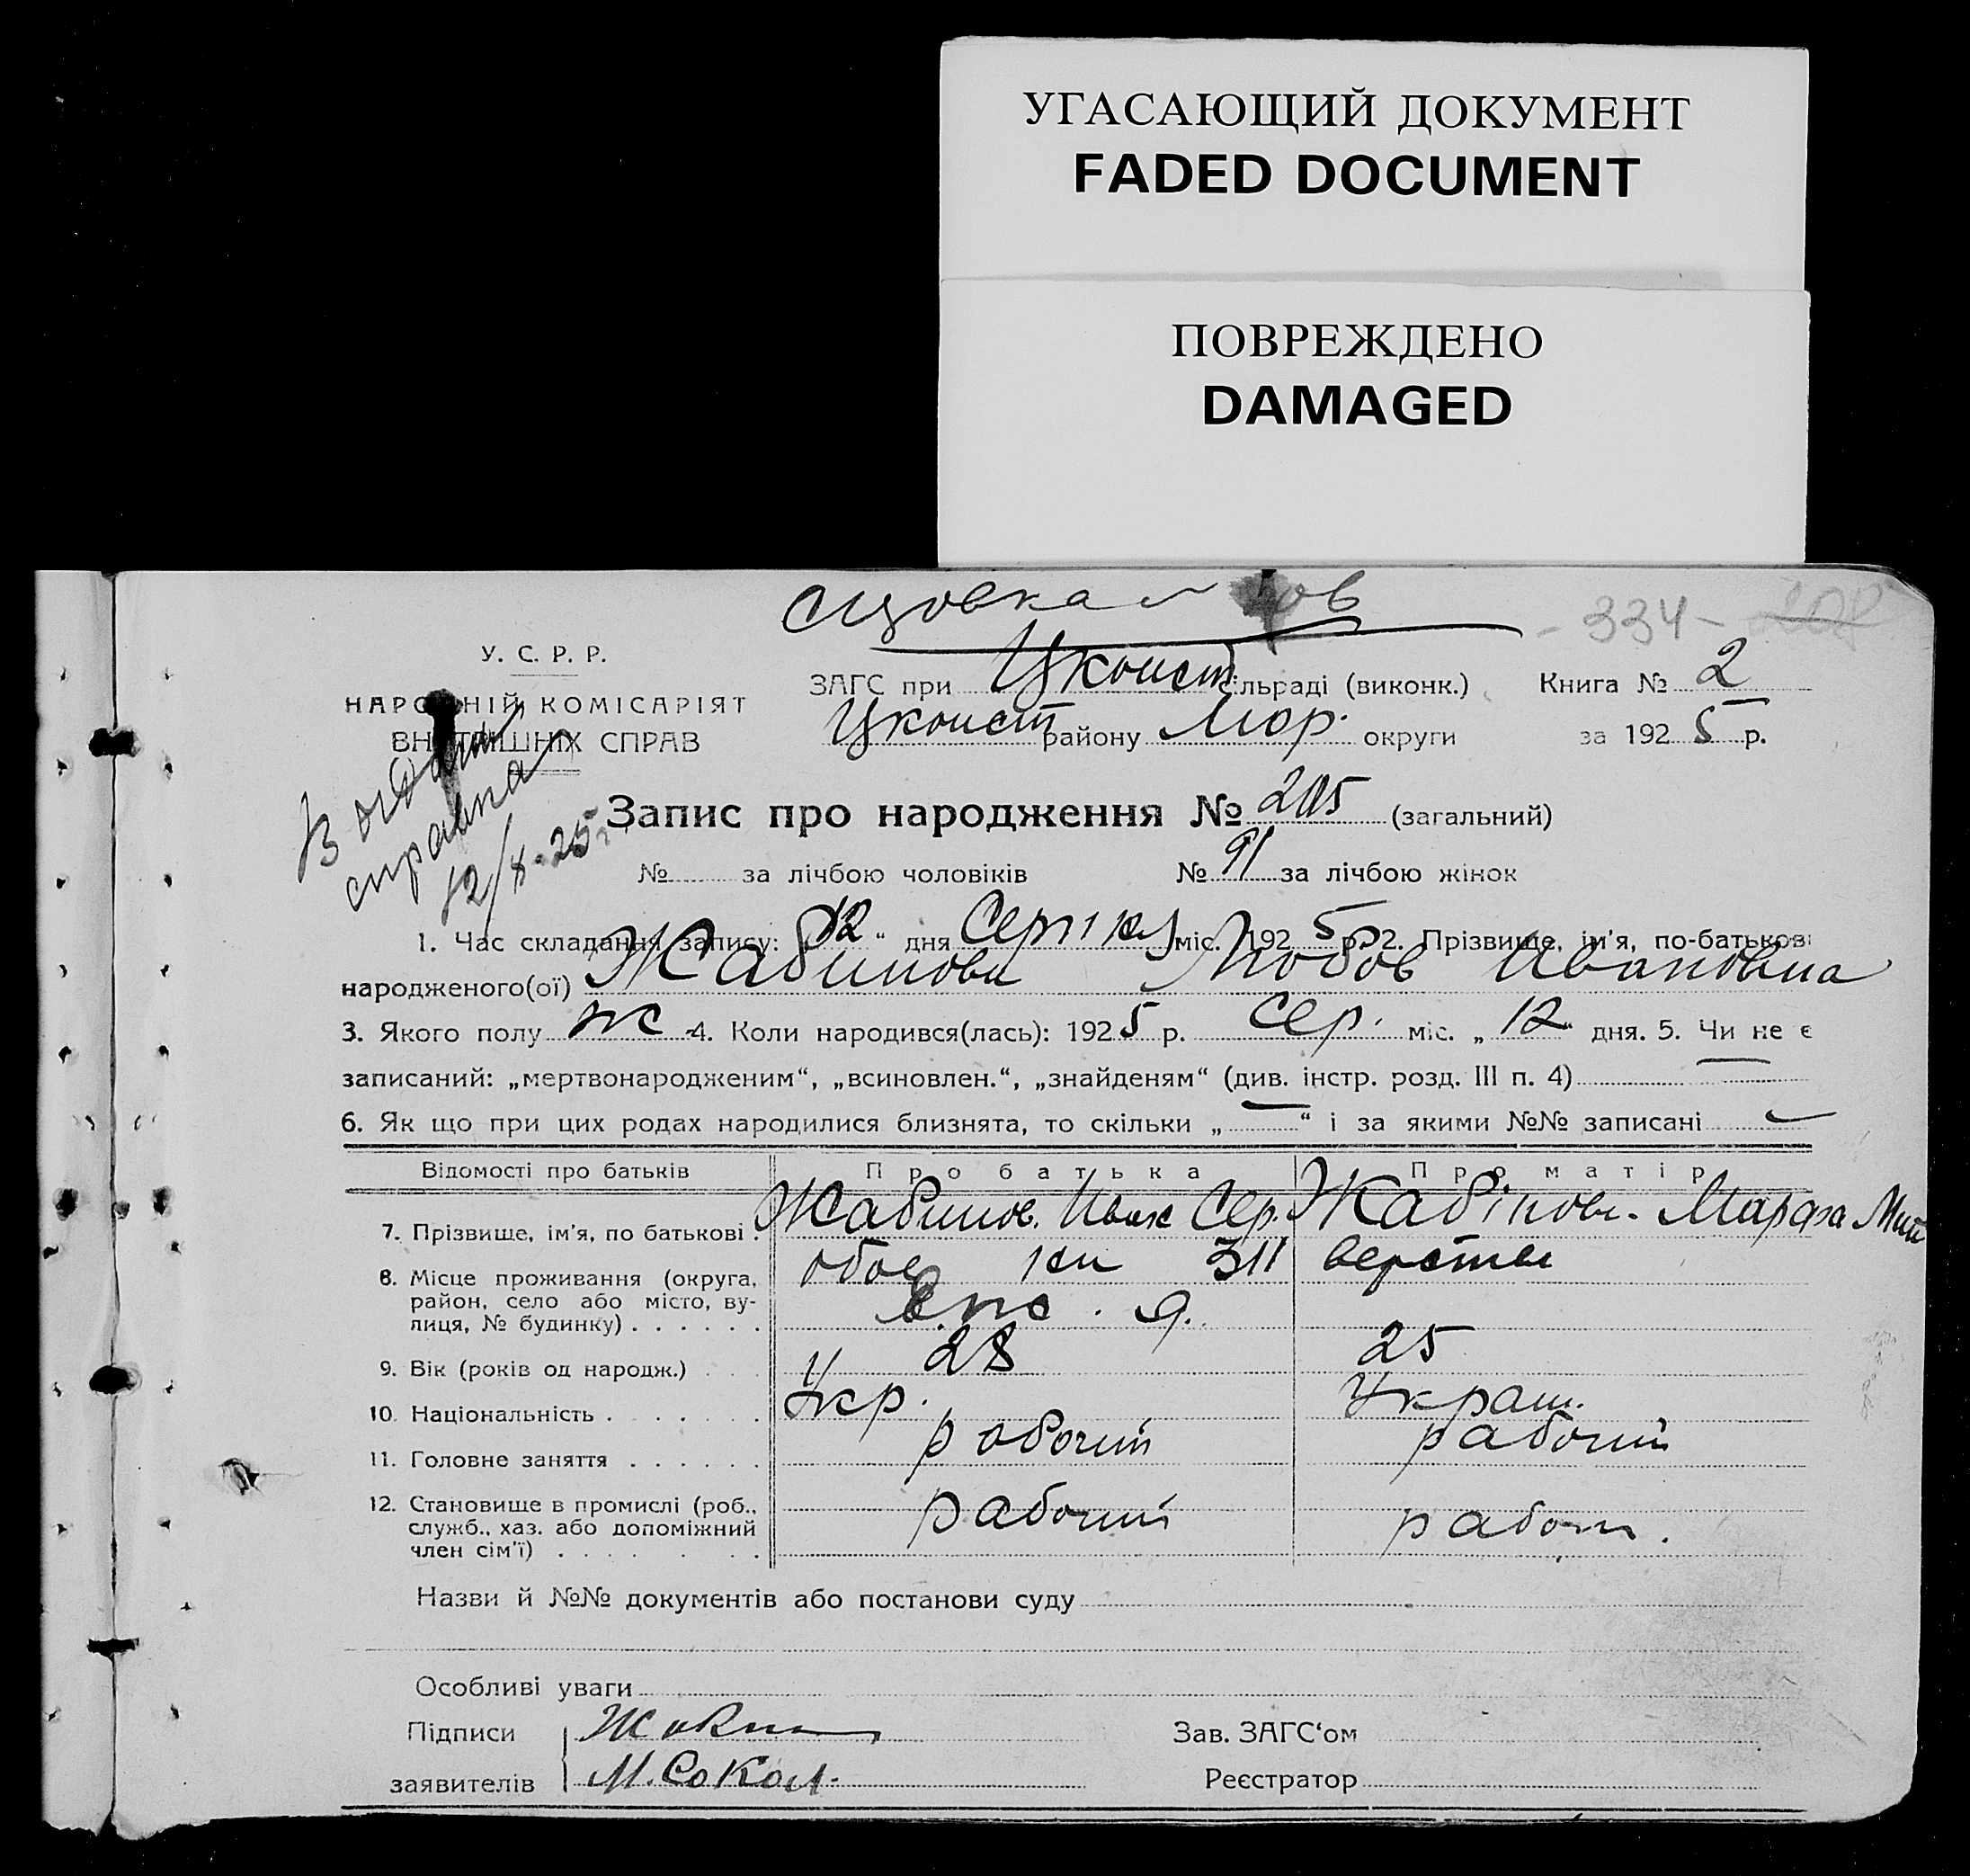 УГАСАЮЩИЙ ДОКУМЕНТ
FADED DOCUMENT
ПОВРЕЖДЕНО
DAMAGED
- 334 -
У. С. Р. Р.
НАРОДНІЙ КОМІСАРІЯТ
ВНУТРІШНІХ СПРАВ
ЗАГС при Цконст сільраді (виконк.) Книга № 2
Цконст району Мар. округи за 1925 р.
справка
12/8-25 г.
Запис про народження № 205 (загальний)
№ за лічбою чоловіків № 91 за лічбою жінок
1. Час складання запису: „12“ дня Серпня міс. 1925 р. 2. Прізвище, ім'я, по-батькові
народженого(ої) Жабинова Любов Ивановна
3. Якого полу ж 4. Коли народився(лась): 1925 р. Сер. міс. „12“ дня. 5. Чи не є
записаний: „мертвонародженим“, „всиновлен.“, „знайденям“ (див. інстр. розд. III п. 4) —
6. Як що при цих родах народилися близнята, то скільки „—“ і за якими №№ записані —
Відомості про батьків Про батька Про матір
7. Прізвище, ім'я, по батькові . Жабинов. Иван Сер. Жабінов. Марфа
8. Місце проживання (округа, район, село або місто, вулиця, № будинку) . . . . . . обое 311 версты
9. Вік (років од народж.) . . . 28 25
10. Національність . . . . . . . Укр. Украин.
11. Головне заняття . . . . . . рабочий рабочий
12. Становище в промислі (роб., служб., хаз. або допоміжний член сім'ї) . . . . . . . рабочий рабоч.
Назви й №№ документів або постанови суду
Особливі уваги
Підписи
Зав. ЗАГС'ом
заявителів М. Сокол.
Реєстратор